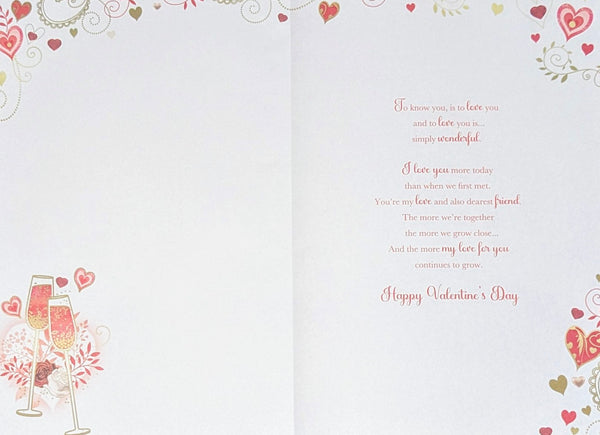 To know you, is to love you
and to love you is...
simply wonderful.
I love you more today
than when we first met.
You're my love and also dearest friend.
The more we're together
the more we grow close...
And the more my love for you
continues to grow.
Happy Valentine's Day